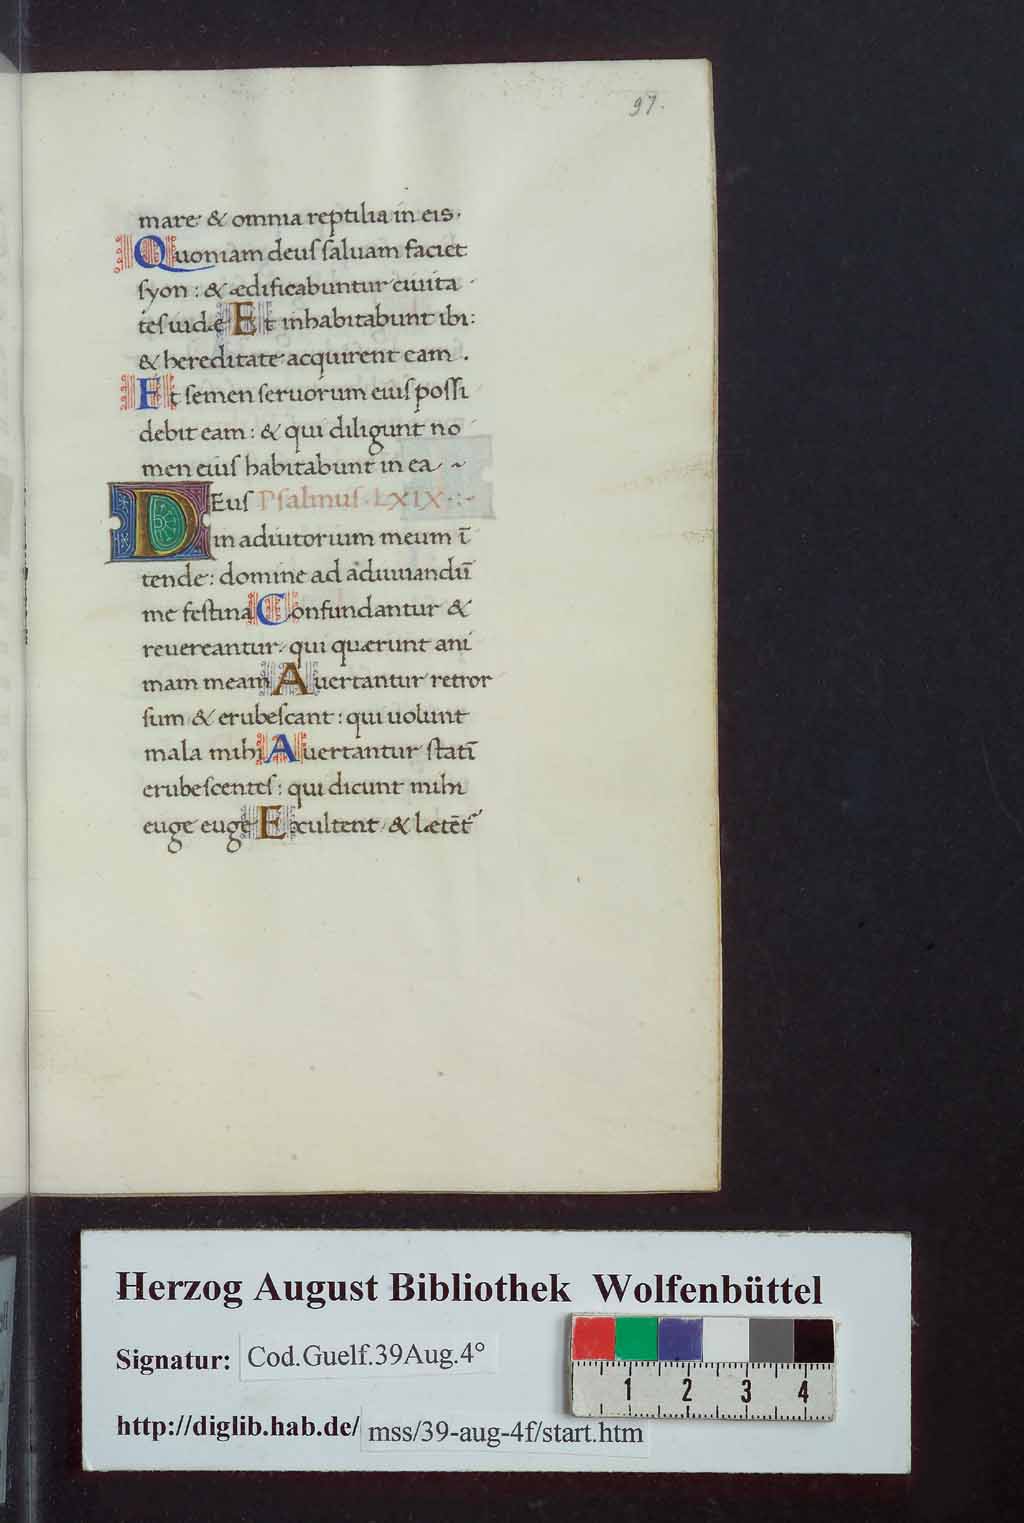 97.
mare & omnia reptilia in eis.
Quoniam deuſ ſaluam faciet
ſyon : & ædificabuntur ciuita
teſ iudæ Et inhabitabunt ibi:
& hereditate acquirent eam .
Et ſemen ſeruorum eiuſ poſſi
debit eam : & qui diligunt no
men eiuſ habitabunt in ea ~
DEuſ Pſalmuſ . LXIX .:~
in adiutorium meum ī
tende : domine ad adiuuandū
me feſtina Confundantur &
reuereantur: qui quærunt ani
mam meam Auertantur retror
ſum & erubeſcant : qui uolunt
mala mihi Auertantur ſtatī
erubeſcenteſ : qui dicunt mihi
euge euge Exultent & lætēt᷑
Herzog August Bibliothek Wolfenbüttel
Signatur: Cod.Guelf.39Aug.4°
1 2 3 4
http://diglib.hab.de/ mss/39-aug-4f/start.htm